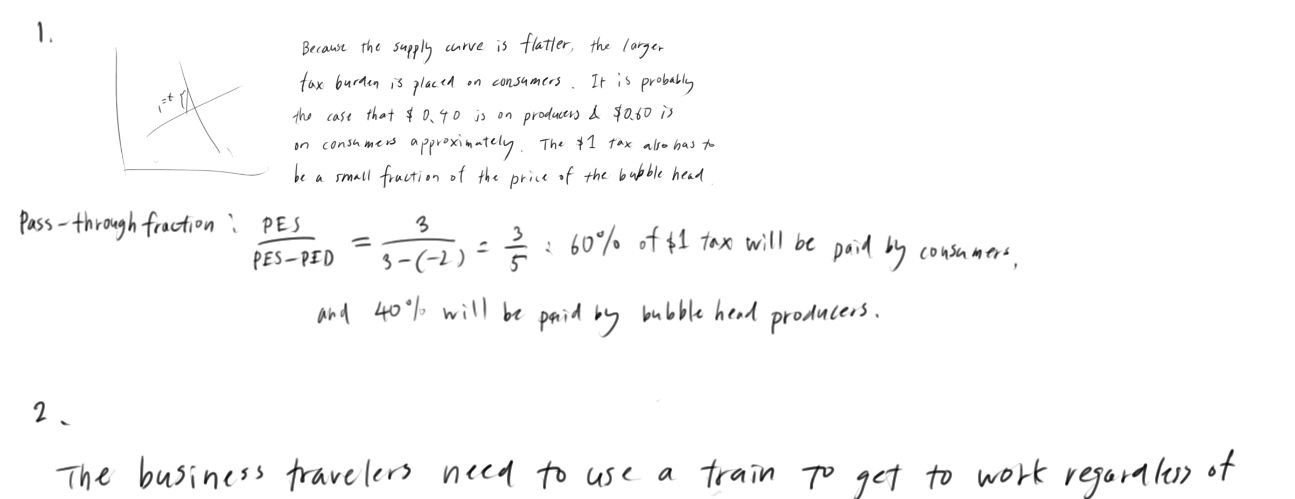 1.
Because the supply curve is flatter, the larger
tax burden is placed on consumers. It is probably
the case that $0.40 is on producers & $0.60 is
on consumers approximately. The $1 tax also has to
be a small fraction of the price of the bubble head
Pass-through fraction: PES/PES-PED = 3/3-(-2) = 3/5 : 60% of $1 tax will be paid by consumers,
and 40% will be paid by bubble head producers.
2.
The business travelers need to use a train to get to work regardless of